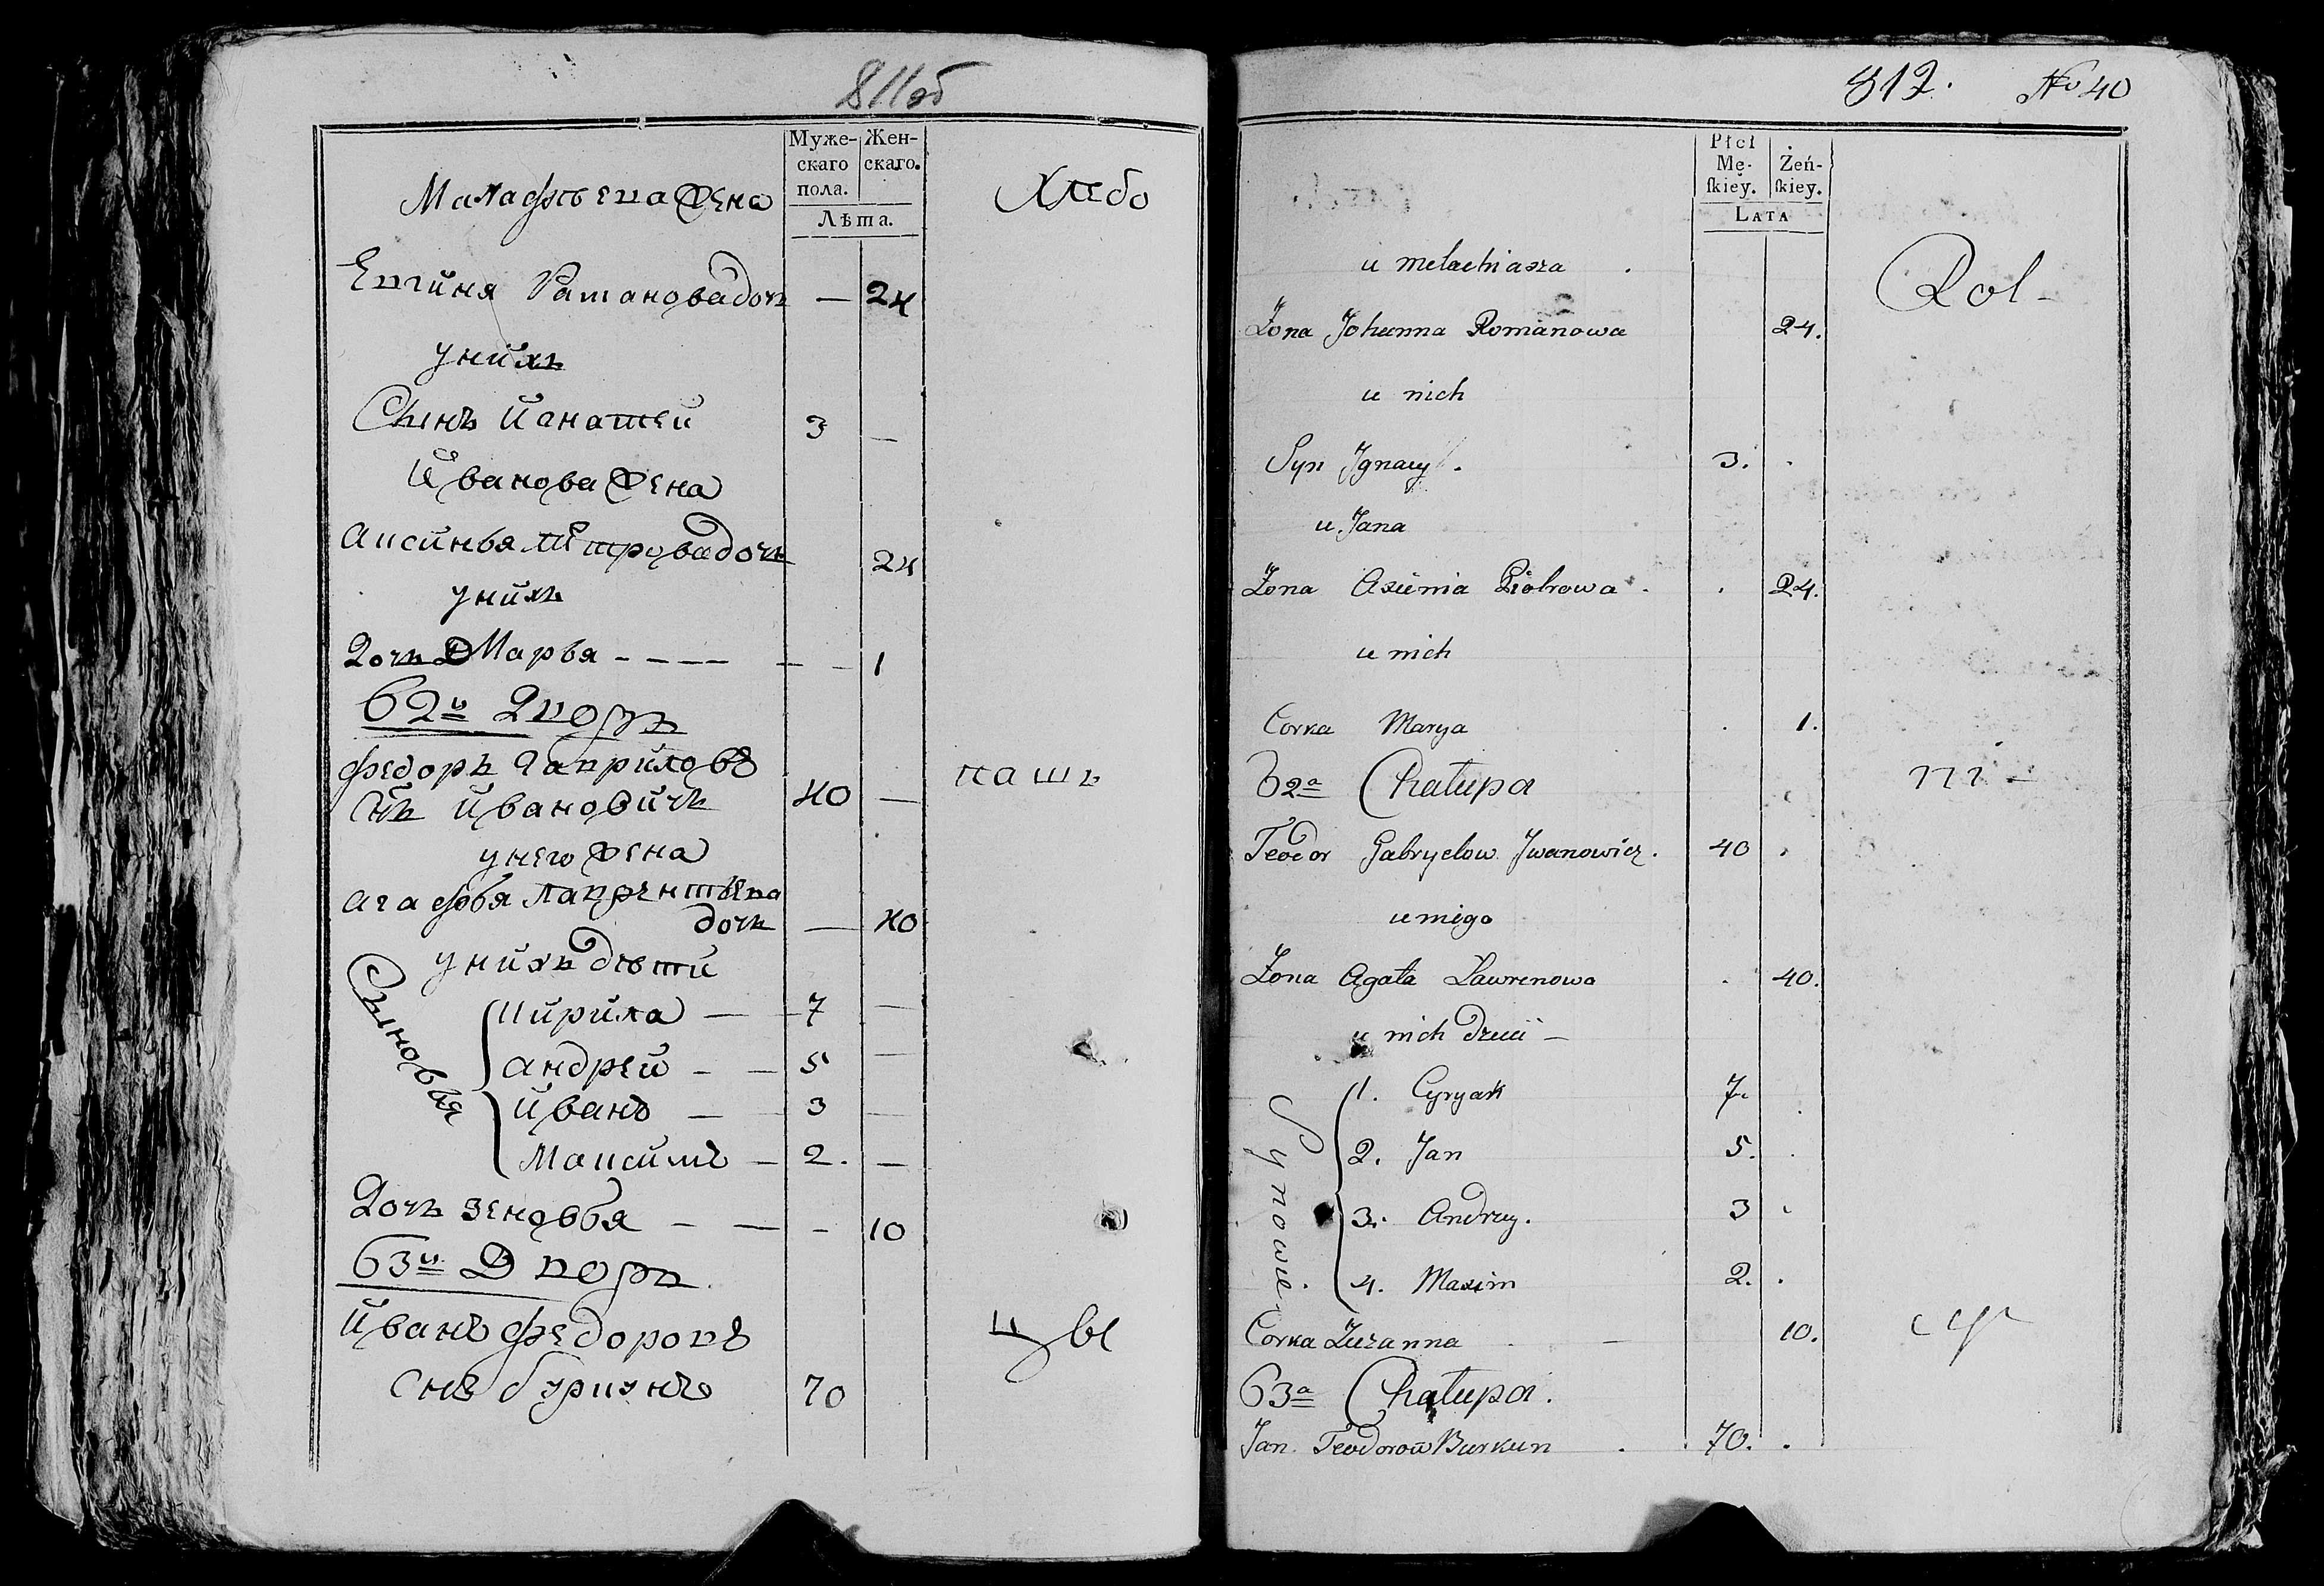 811об
Муже- Жен-
скаго скаго.
пола.
Лѣта.
Малафѣева жена
Хлебо
Евгиня Раманова дочь — 24
у нихъ
Сынъ Игнатей 3 —
Иванова жена
Аксинья Петрова дочь 24
у нихъ
Дочь Марья - - - - - - 1
62й Дворъ
Федоръ Гавриловъ
пашъ
снъ Ивановичъ 40 —
у него жена
Агафья Лаврентьева
дочь — 40
у нихъ дѣти
Сыновья
Кирила — 7 —
Андрей - — 5 —
Иванъ — 3 —
Максимъ — 2. —
Дочь Зеновья - — - 10
63й Дворъ
Иванъ Федоровъ
цы
снъ Буркунъ 70
812. No 40
Płci
Mę- Żeń-
ſkiey. ſkiey.
LATA
u melachiasza
Rol-
Żona Johanna Romanowa 24.
u nich
Syn Jgnacy. 3.
u Jana
Żona Axinia Piotrowa 24.
u nich
Corka Marya 1.
62a Chałupa
ni-
Teodor Gabryelow Jwanowicz. 40
u niego
Żona Agata Lawrenowa 40.
u nich dzieci —
Synowie.
1. Cyryak 7.
2. Jan 5.
3. Andrzey. 3
4. Maxim 2.
Corka Zuzanna 10.
cy
63a Chałupa.
Jan Teodorow Burkun 70.